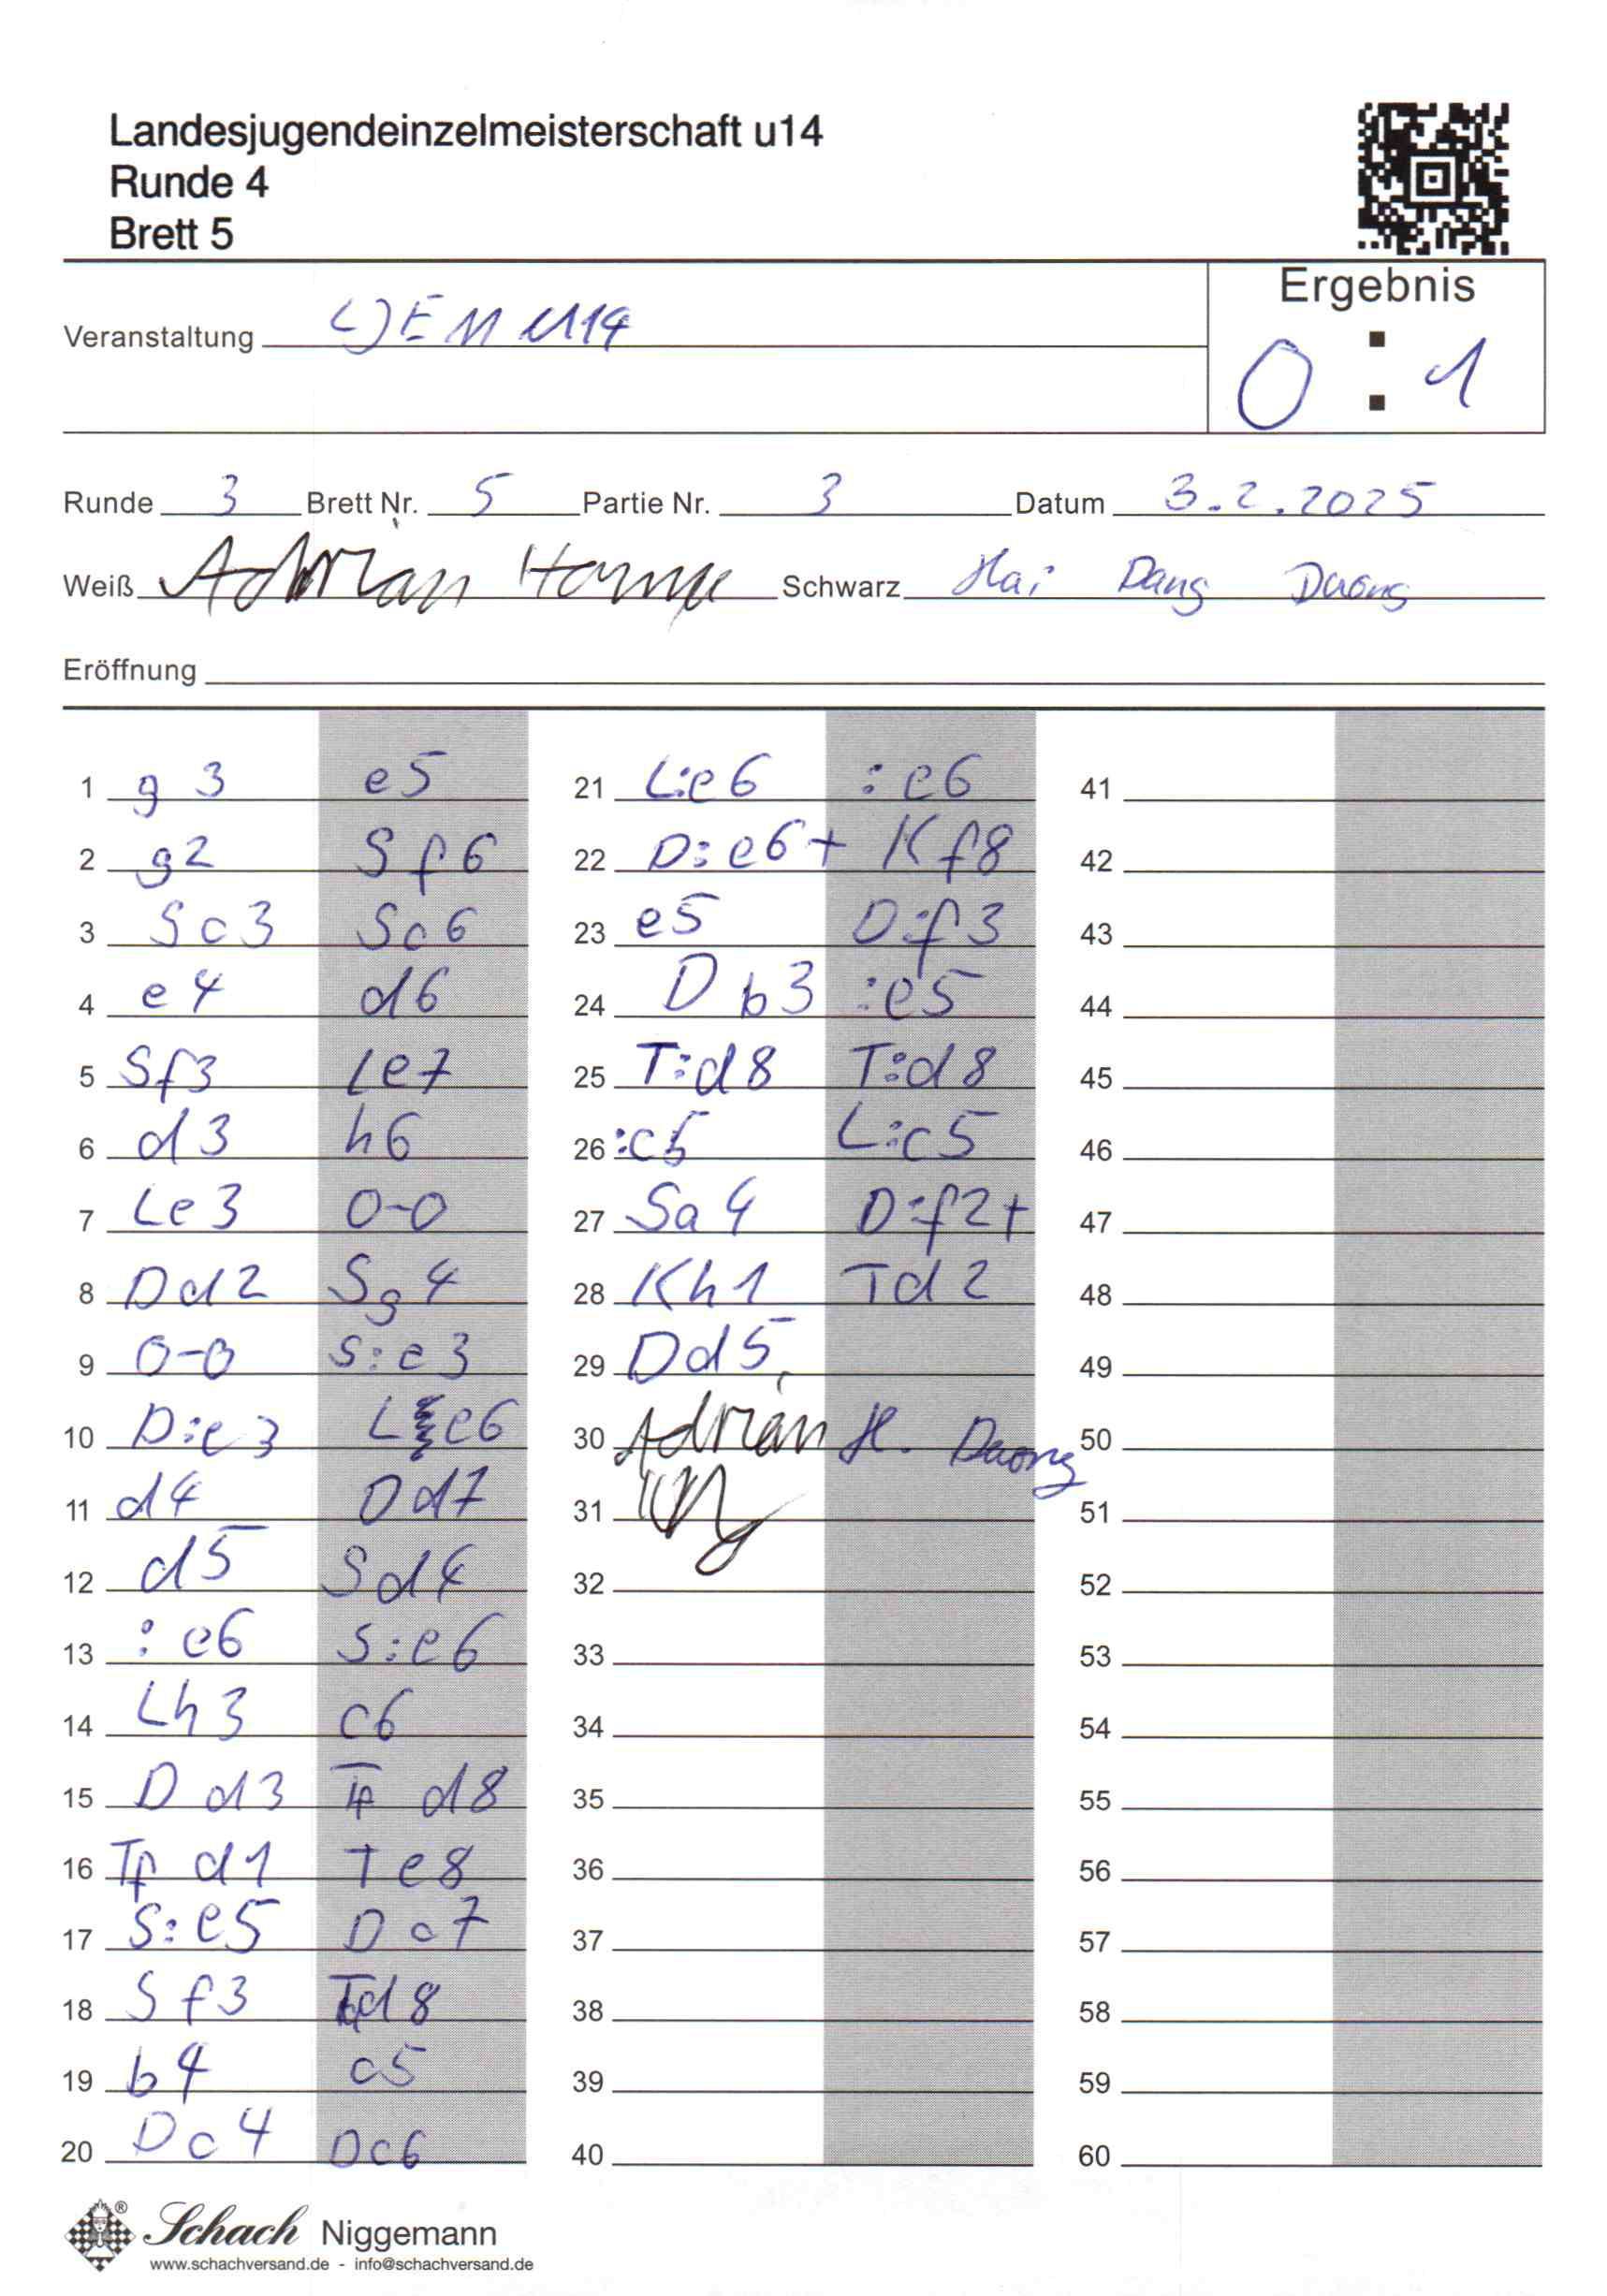 Landesjugendeinzelmeisterschaft u14
Runde 4
Brett 5
Ergebnis
0 : 1
Veranstaltung LJEM U14
Runde 3 Brett Nr. 5 Partie Nr. 3 Datum 3.2.2025
Weiß Adrian Schwarz Hai Dang Duong
Eröffnung
1 g3 e5
2 g2 Sf6
3 Sc3 Sc6
4 e4 d6
5 Sf3 Le7
6 d3 h6
7 Le3 0-0
8 Dd2 Sg4
9 0-0 S:e3
10 D:e3 Le6
11 d4 Dd7
12 d5 Sd4
13 :e6 S:e6
14 Lh3 c6
15 Dd3 Td8
16 Tf d1 Te8
17 S:e5 Dc7
18 Sf3 Td8
19 b4 c5
20 Dc4 Dc6
21 L:e6 :e6
22 D:e6+ Kf8
23 e5 D:f3
24 Db3 :e5
25 T:d8 T:d8
26 :c5 L:c5
27 Sa4 D:f2+
28 Kh1 Td2
29 Dd5
30 Adrian H. Duong
31
32
33
34
35
36
37
38
39
40
41
42
43
44
45
46
47
48
49
50
51
52
53
54
55
56
57
58
59
60
Schach Niggemann
www.schachversand.de - info@schachversand.de